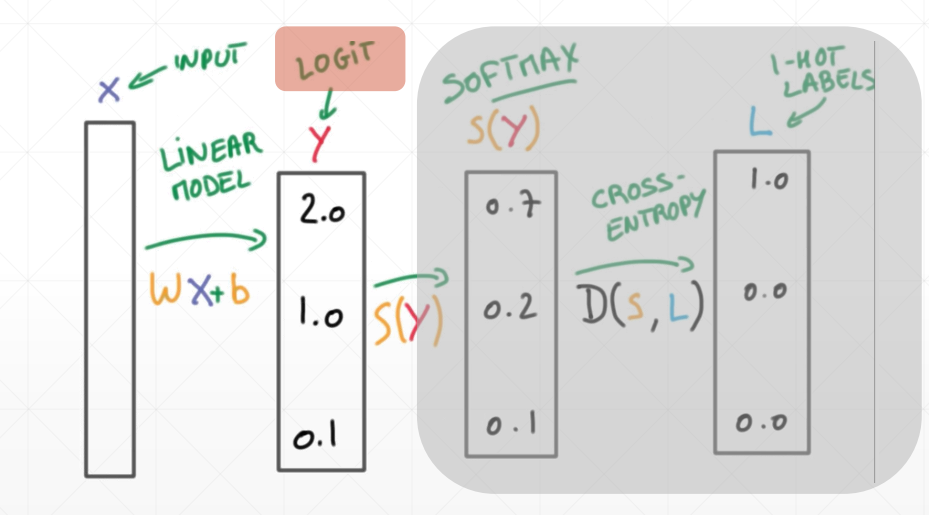 X
INPUT
LINEAR
MODEL
WX+b
LOGIT
Y
2.0
1.0
0.1
S(Y)
SOFTMAX
S(Y)
0.7
0.2
0.1
CROSS-
ENTROPY
D(S,L)
1-HOT
LABELS
L
1.0
0.0
0.0